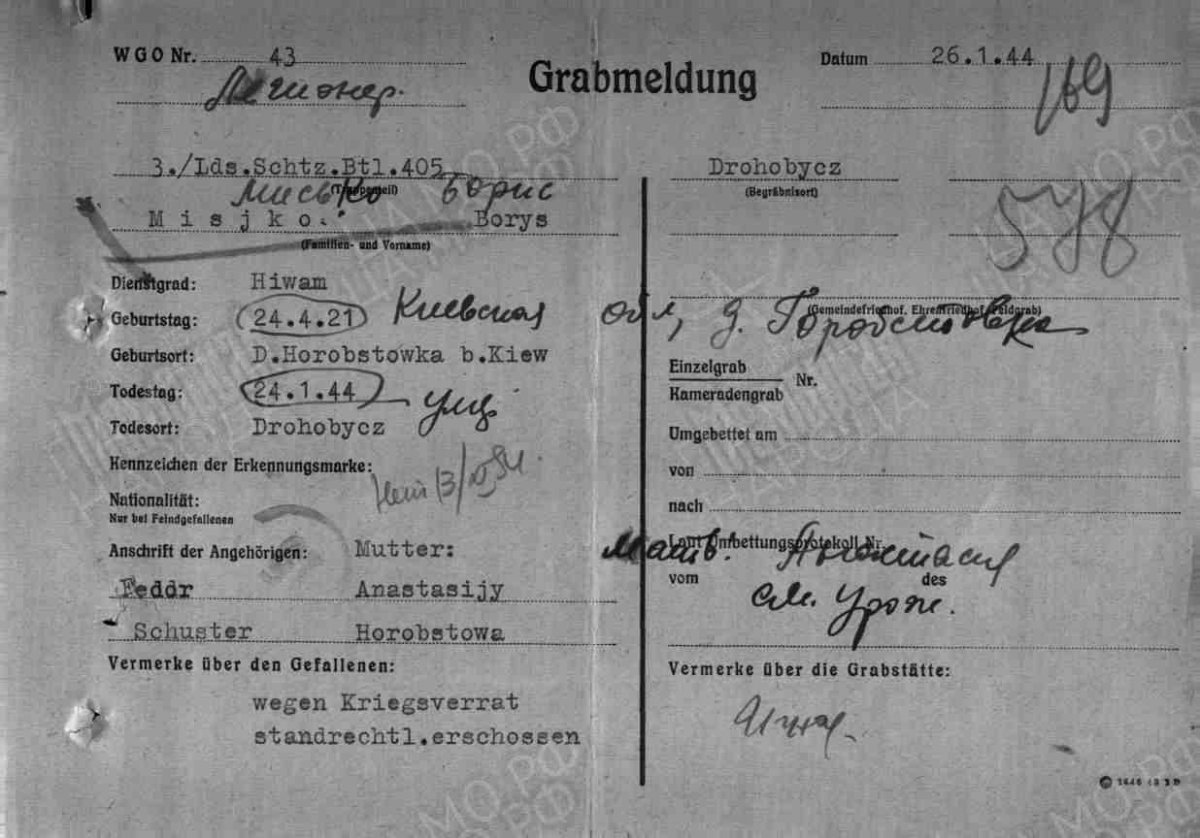 WGO Nr. 43
Легионер.
Grabmeldung
Datum 26.1.44
169
3./Lds.Schtz.Btl.405
(Truppenteil)
Мисько Борис
Misjko. Borys
(Familien- und Vorname)
Dienstgrad: Hiwam
Geburtstag: 24.4.21 Киевская обл, д. Горобстовка
Geburtsort: D.Horobstowka b.Kiew
Todestag: 24.1.44
Todesort: Drohobycz
Kennzeichen der Erkennungsmarke:
Nationalität:
Nur bei Feindgefallenen
Anschrift der Angehörigen: Mutter:
Feddr Anastasijy
Schuster Horobstowa
Vermerke über den Gefallenen:
wegen Kriegsverrat
standrechtl.erschossen
Drohobycz
(Begräbnisort)
578
(Gemeindefriedhof, Ehrenfriedhof, Feldgrab)
Einzelgrab
Nr.
Kameradengrab
Umgebettet am
von
nach
Laut Umbettungsprotokoll Nr.
Анастасия
vom des
Vermerke über die Grabstätte: